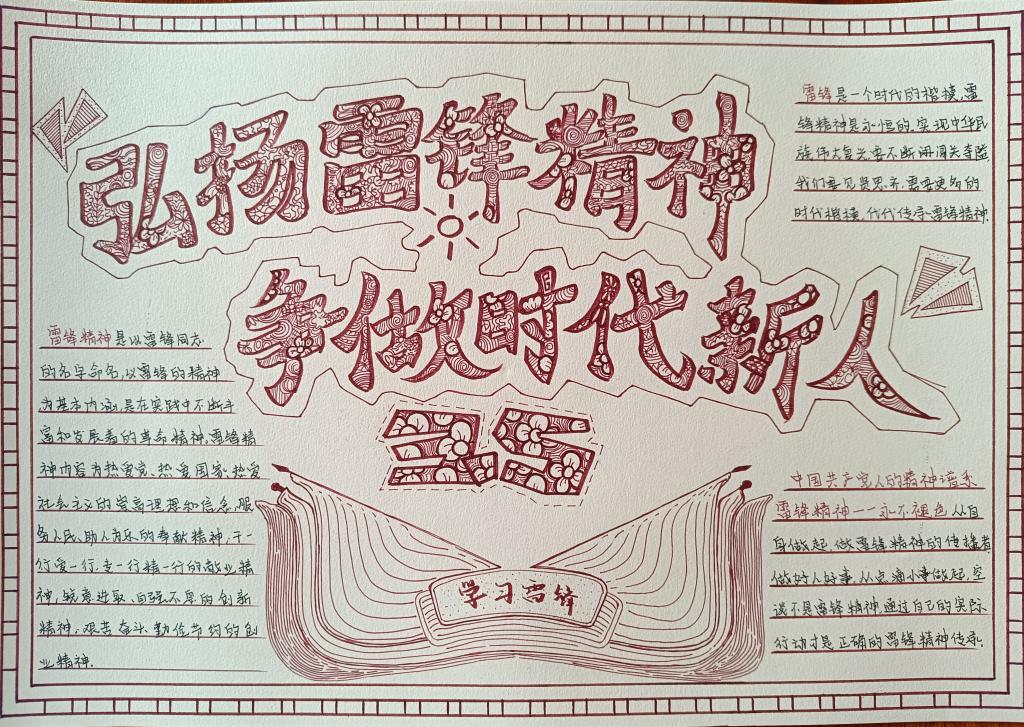 弘扬雷锋精神
争做时代新人
3.5
雷锋是一个时代的楷模,雷
锋精神是永恒的,实现中华民
族伟大复兴要不断闯关夺隘
我们要见贤思齐,需要更多的
时代楷模,代代传承雷锋精神.
雷锋精神是以雷锋同志
的名字命名,以雷锋的精神
为基本内涵,是在实践中不断丰
富和发展着的革命精神,雷锋精
神内容为热爱党、热爱国家,热爱
社会主义的崇高理想和信念,服
务人民、助人为乐的奉献精神,干一
行爱一行、专一行精一行的敬业精
神,锐意进取、自强不息的创新
精神,艰苦奋斗、勤俭节约的创
业精神.
学习雷锋
中国共产党人的精神谱系
雷锋精神——永不褪色,从自
身做起,做雷锋精神的传播者
做好人好事,从点滴小事做起,空
谈不是雷锋精神,通过自己的实际
行动才是正确的雷锋精神传承.